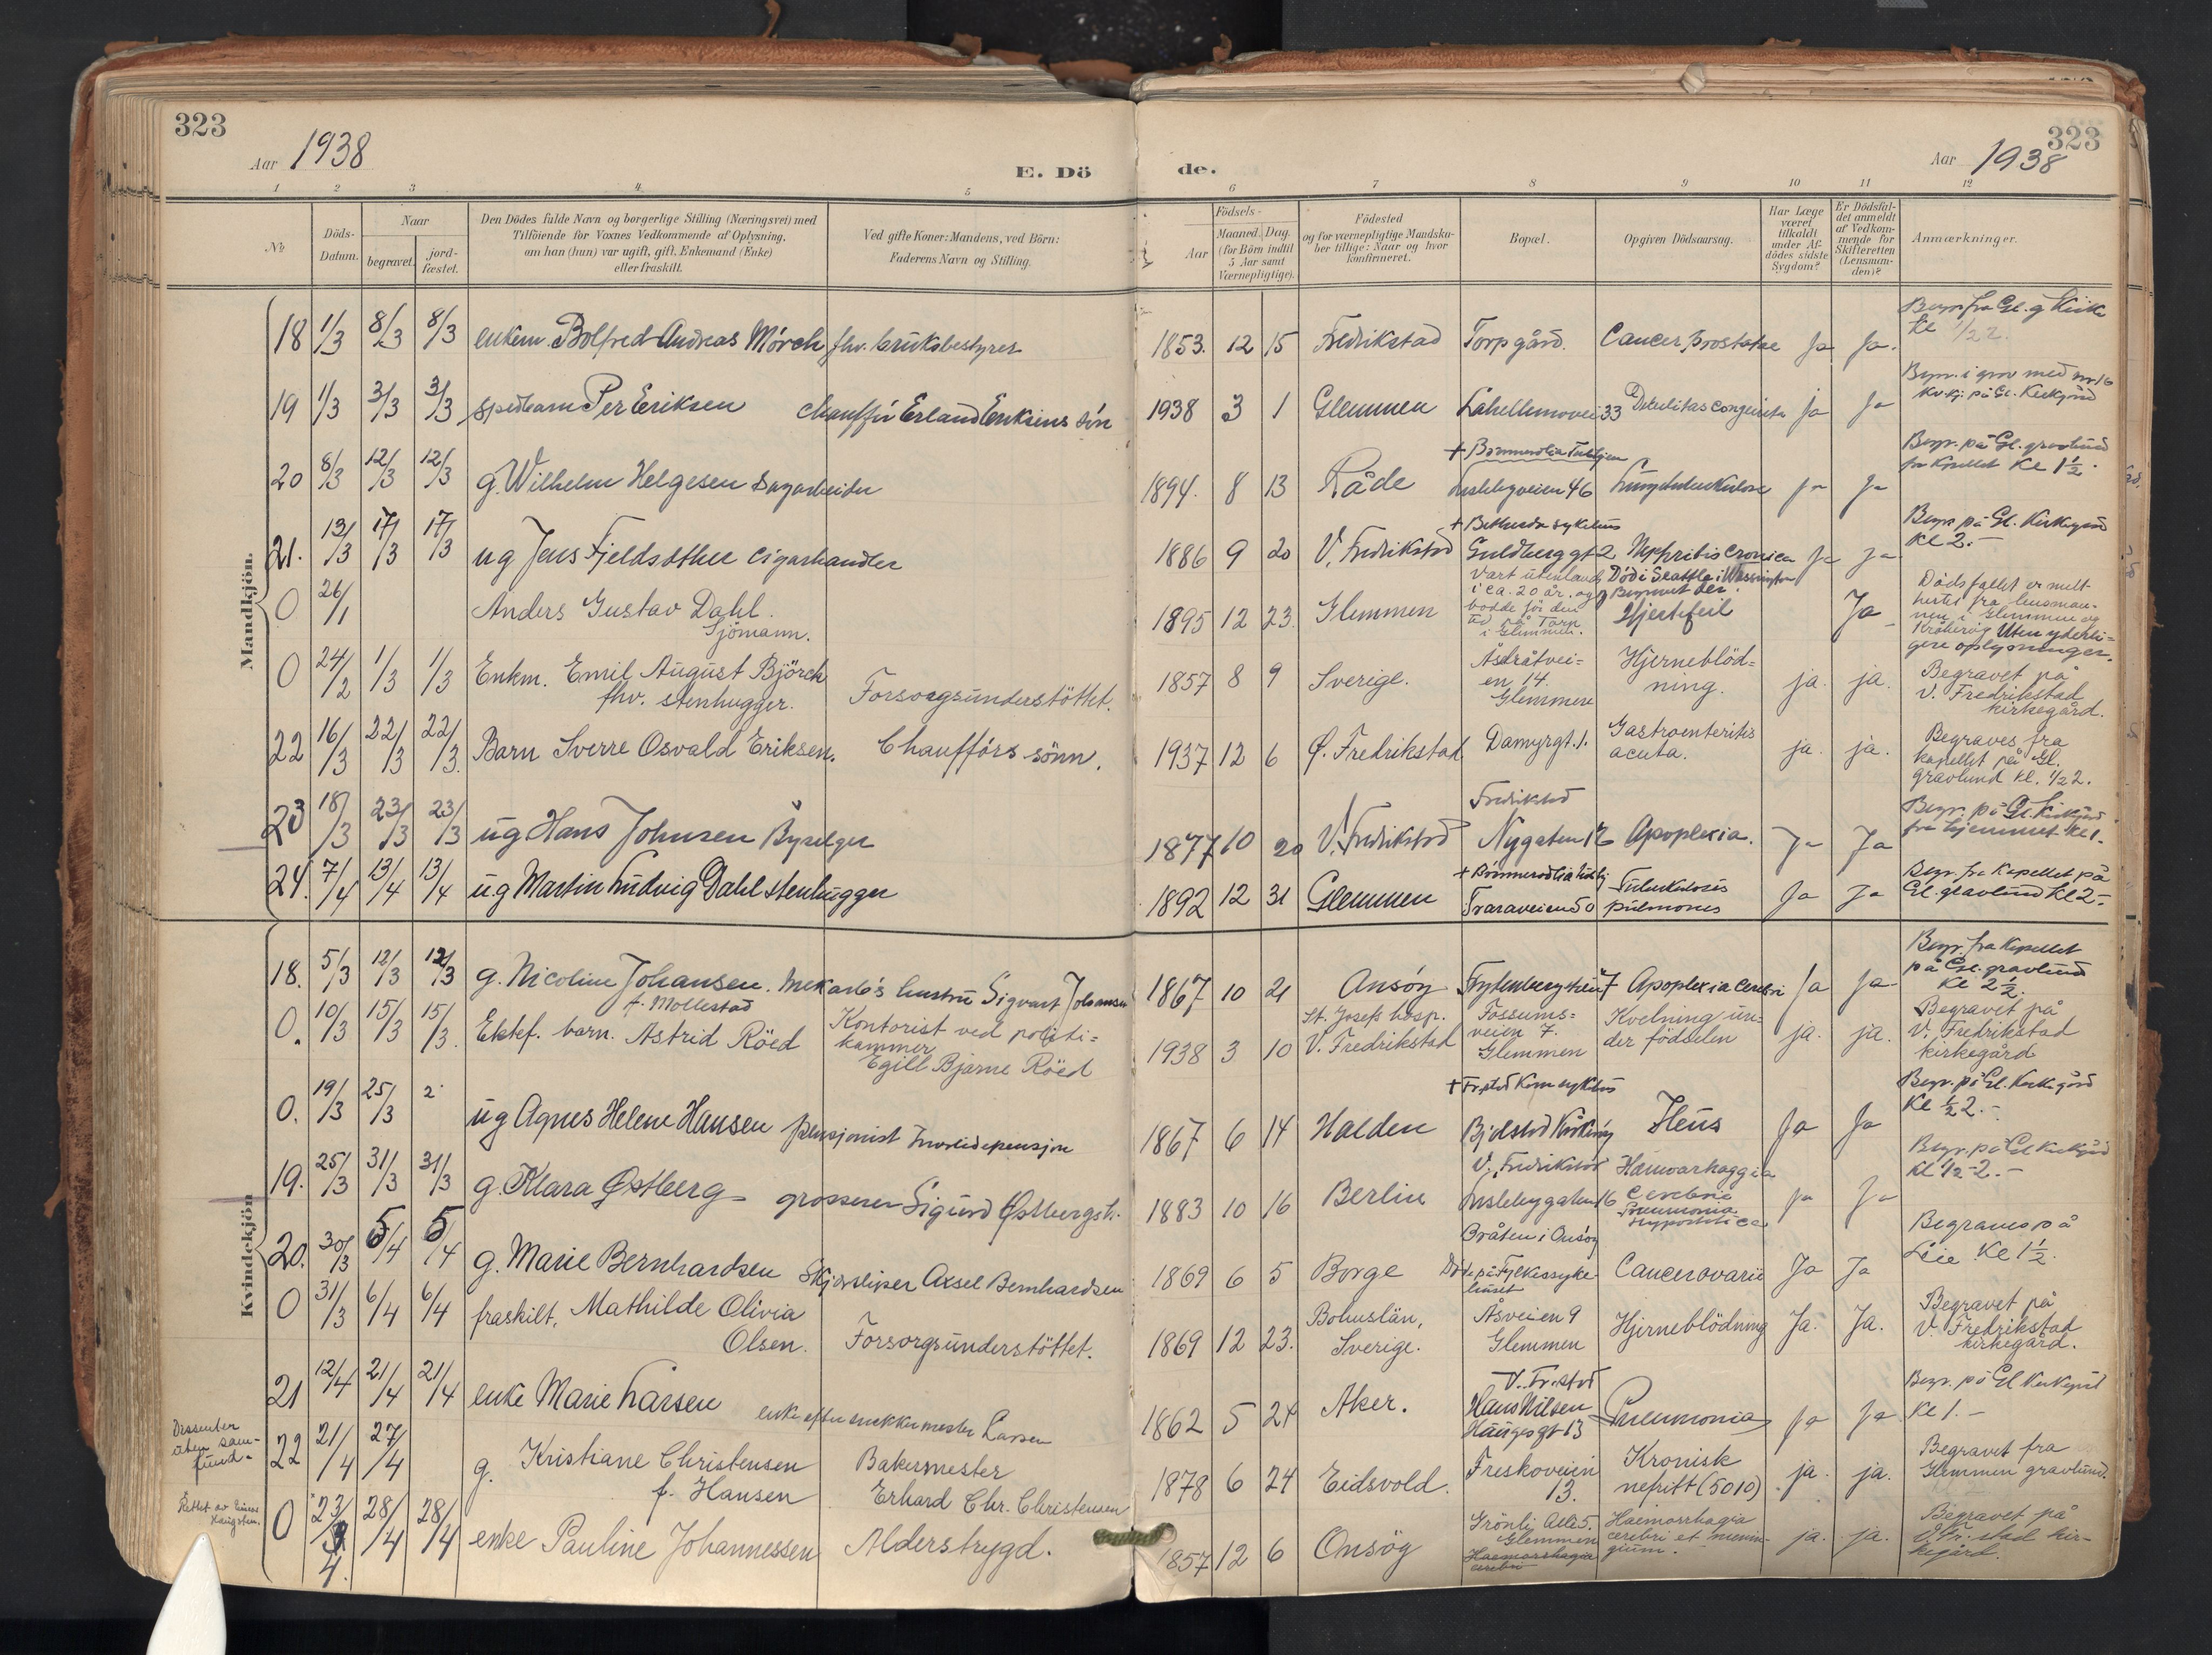 323
Aar 1938
E. Dö
1 2 3 4. 5
№
Döds-
Datum.
Naar
begravet.
jord-
fæstet.
Den Dödes fulde Navn og borgerlige Stilling (Næringsvei) med
Tilföiende for Voxnes Vedkommende af Oplysning,
om han (hun) var ugift, gift, Enkemand (Enke)
eller fraskilt.
Ved gifte Koner: Mandens, ved Börn:
Faderens Navn og Stilling.
Mandkjön.
18 1/3 8/3 8/3 enkem. Bolfred Andreas Mörch fhv. bruksbestyrer
19 1/3 3/3 3/3 spedbarn Per Eriksen chaufför Erland Eriksens sön
20 8/3 12/3 12/3 g. Wilhelm Helgesen sagarbeider
21. 13/3 17/3 17/3 ug Jens Fjeldsæther cigarhandler
0 26/1 Anders Gustav Dahl.
Sjömann.
0 24/2 1/3 1/3 Enkm. Emil August Björch
fhv. stenhugger. Forsorgsunderstöttet.
22 16/3 22/3 22/3. Barn Sverre Osvald Eriksen. Chaufförs sönn.
23 18/3 23/3 23/3 ug Hans Johnsen Byselger
24. 7/4 13/4 13/4 ug Martin Ludvig Dahl stenhugger
Kvindekjön
18. 5/3 12/3 12/3 g. Nicoline Johansen. hustru Sigvart Johansen
f. Mollestad
0. 10/3 15/3 15/3. Ektef. barn. Astrid Röed Kontorist ved politi=
kammer
Egill Bjarne Röed
0. 19/3 25/3 2 ug Agnes Helene Hansen pensjonist Invalidepensjon
19. 25/3 31/3 31/3 g. Klara Østberg grosserer Sigurd Østbergs h.
20. 30/3 5/4 5/4 g. Marie Bernhardsen Skjærsliper Axsel Bernhardsen
0 31/3 6/4 6/4 fraskilt, Mathilde Olivia
Olsen. Forsorgsunderstöttet.
21 12/4 21/4 21/4 enke Marie Larsen enke efter snekkermester Larsen
Dissenter
uten sam-
fund.
22 21/4 27/4 g. Kristiane Christensen Bakermester
f. Hansen Erhard Chr. Christensen
Rettet av
0 23/4. 28/4 28/4 enke Pauline Johannessen Alderstrygd.
323
de.
Aar 1938
6 7 8 9 10 11 12
Födsels-
Aar
Maaned. Dag.
(for Börn indtil
5 Aar samt
Værnepligtige).
Födested
og for værnepligtige Mandsku-
ber tillige: Naar og hvor
konfirmeret.
Bopæl.
Opgiven Dödsaarsag.
Har Læge
været
tilkaldt
under Af-
dödes sidste
Sygdom?
Er Dödsfal-
det anmeldt
af Vedkom-
mende for
Skifteretten
(Lensman-
den)?
Anmærkninger.
1853. 12 15 Fredrikstad Torp gård. Cancer prostatae Ja Ja. Begr. fra Gl. g Kirke
Kl 1/2 2.
1938 3 1 Glemmen Lahellemovei 33 Debilitas congenita ja ja Begr. i grav med nr 16
kv.kj. på Gl. Kirkegård
+ Bömmerölia Tubhjem
1894. 8 13 Råde Leiebyveien 46 Lungetuberkulose ja ja Begr. på Gl. gravlund
fra Kapellet Kl 1½.
+ Bethesda sykehus
1886 9 20 V. Fredrikstad Guldberg gt 2 Nephritis cronica Ja ja Begr. på Gl. Kirkegård
Kl 2.-
1895 12 23. Glemmen Vært utenlands
i ca. 20 år. og
bodde för den
tid på Torp
i Glemmen. Död i Seattle i Wassington
Begravet der.
Hjertefeil Ja Dödsfallet er melt
hertet fra lensman-
nen i Glemmen og
Kråkeröy Uten yderli=
gere oplysninger.
1857 8 9 Sverige. Åsdråtvei=
en 14.
Glemmen Hjerneblöd=
ning. ja. ja. Begravet på
V. Fredrikstad
kirkegård.
1937 12 6 Ø. Fredrikstad Damyrgt. 1. Gastroenteritis
acuta. ja. ja. Begraves fra
kapellet på Gl.
gravlund kl. 1/2 2.
Fredrikstad
1877 10 20 V. Fredrikstad Nygaten 17 Apoplexia. Ja Ja Begr. på Gl. Kirkegård
fra hjemmet Kl 1.
1892 12 31 Glemmen Traraveien 50 Tuberkulosis
pulmones Ja Ja Begr. fra Kapellet på
Gl. gravlund Kl 2.-
1867 10 21 Onsöy Apoplexia cerebri Ja ja Begr. fra Kapellet
på Gl. gravlund
Kl 2½.
1938 3 10 St. Josefs hosp.
V. Fredrikstad Fossums=
veien 7.
Glemmen Kvelning un=
der födselen ja. ja. Begravet på
V. Fredrikstad
kirkegård
+ Fr.stad Kom sykehus
1867 6 14 Halden Bjölstad Kråkeröy Ileus Ja Ja Begr. på Gl. Kirkegård
Kl ½ 2.-
V. Fredrikstad
1883 10 16 Berlin Leiebygaten 16 Hæmorrhaggia
Cerebri
Pneumonia
hypostatica ja Ja Begr. på Gl Kirkegård
Kl 1/2 2.-
Bråten i Onsöy
1869 6 5 Borge Död på Fylkessyke
huset Cancer ovarie Ja Ja Begraves på
Leie Kl 1½.
1869 12 23. Bohuslän,
Sverige. Åsveien 9
Glemmen Hjerneblödning Ja. Ja. Begravet på
V. Fredrikstad
kirkegård.
V. Fr.stad
1862 5 24 Aker. Hans Nilsen
Hauges gt 13 Pneumonia ja ja Begr. på Gl Kirkegård
Kl 1.-
1878 6 24 Eidsvold. Freskoveien
13. Kronisk
nefritt (5010) ja. ja. Begravet fra
Glemmen gravlund.
1857 12 6 Onsöy Grönli Allé 5.
Glemmen
Haemorrhagia
cerebri Haemorrhagia
cerebri et menin-
gium. ja. ja. Begravet på
V. Fr.stad kir-
kegård.